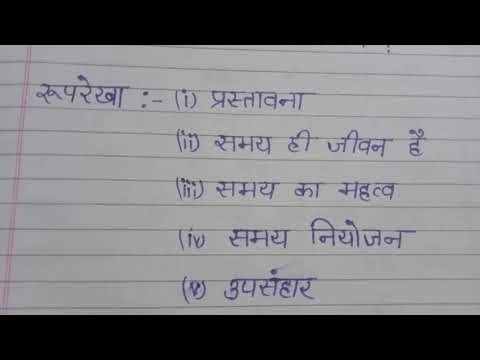 रूपरेखा :- (i) प्रस्तावना
(ii) समय ही जीवन है
(iii) समय का महत्व
(iv समय नियोजन
(v) उपसंहार